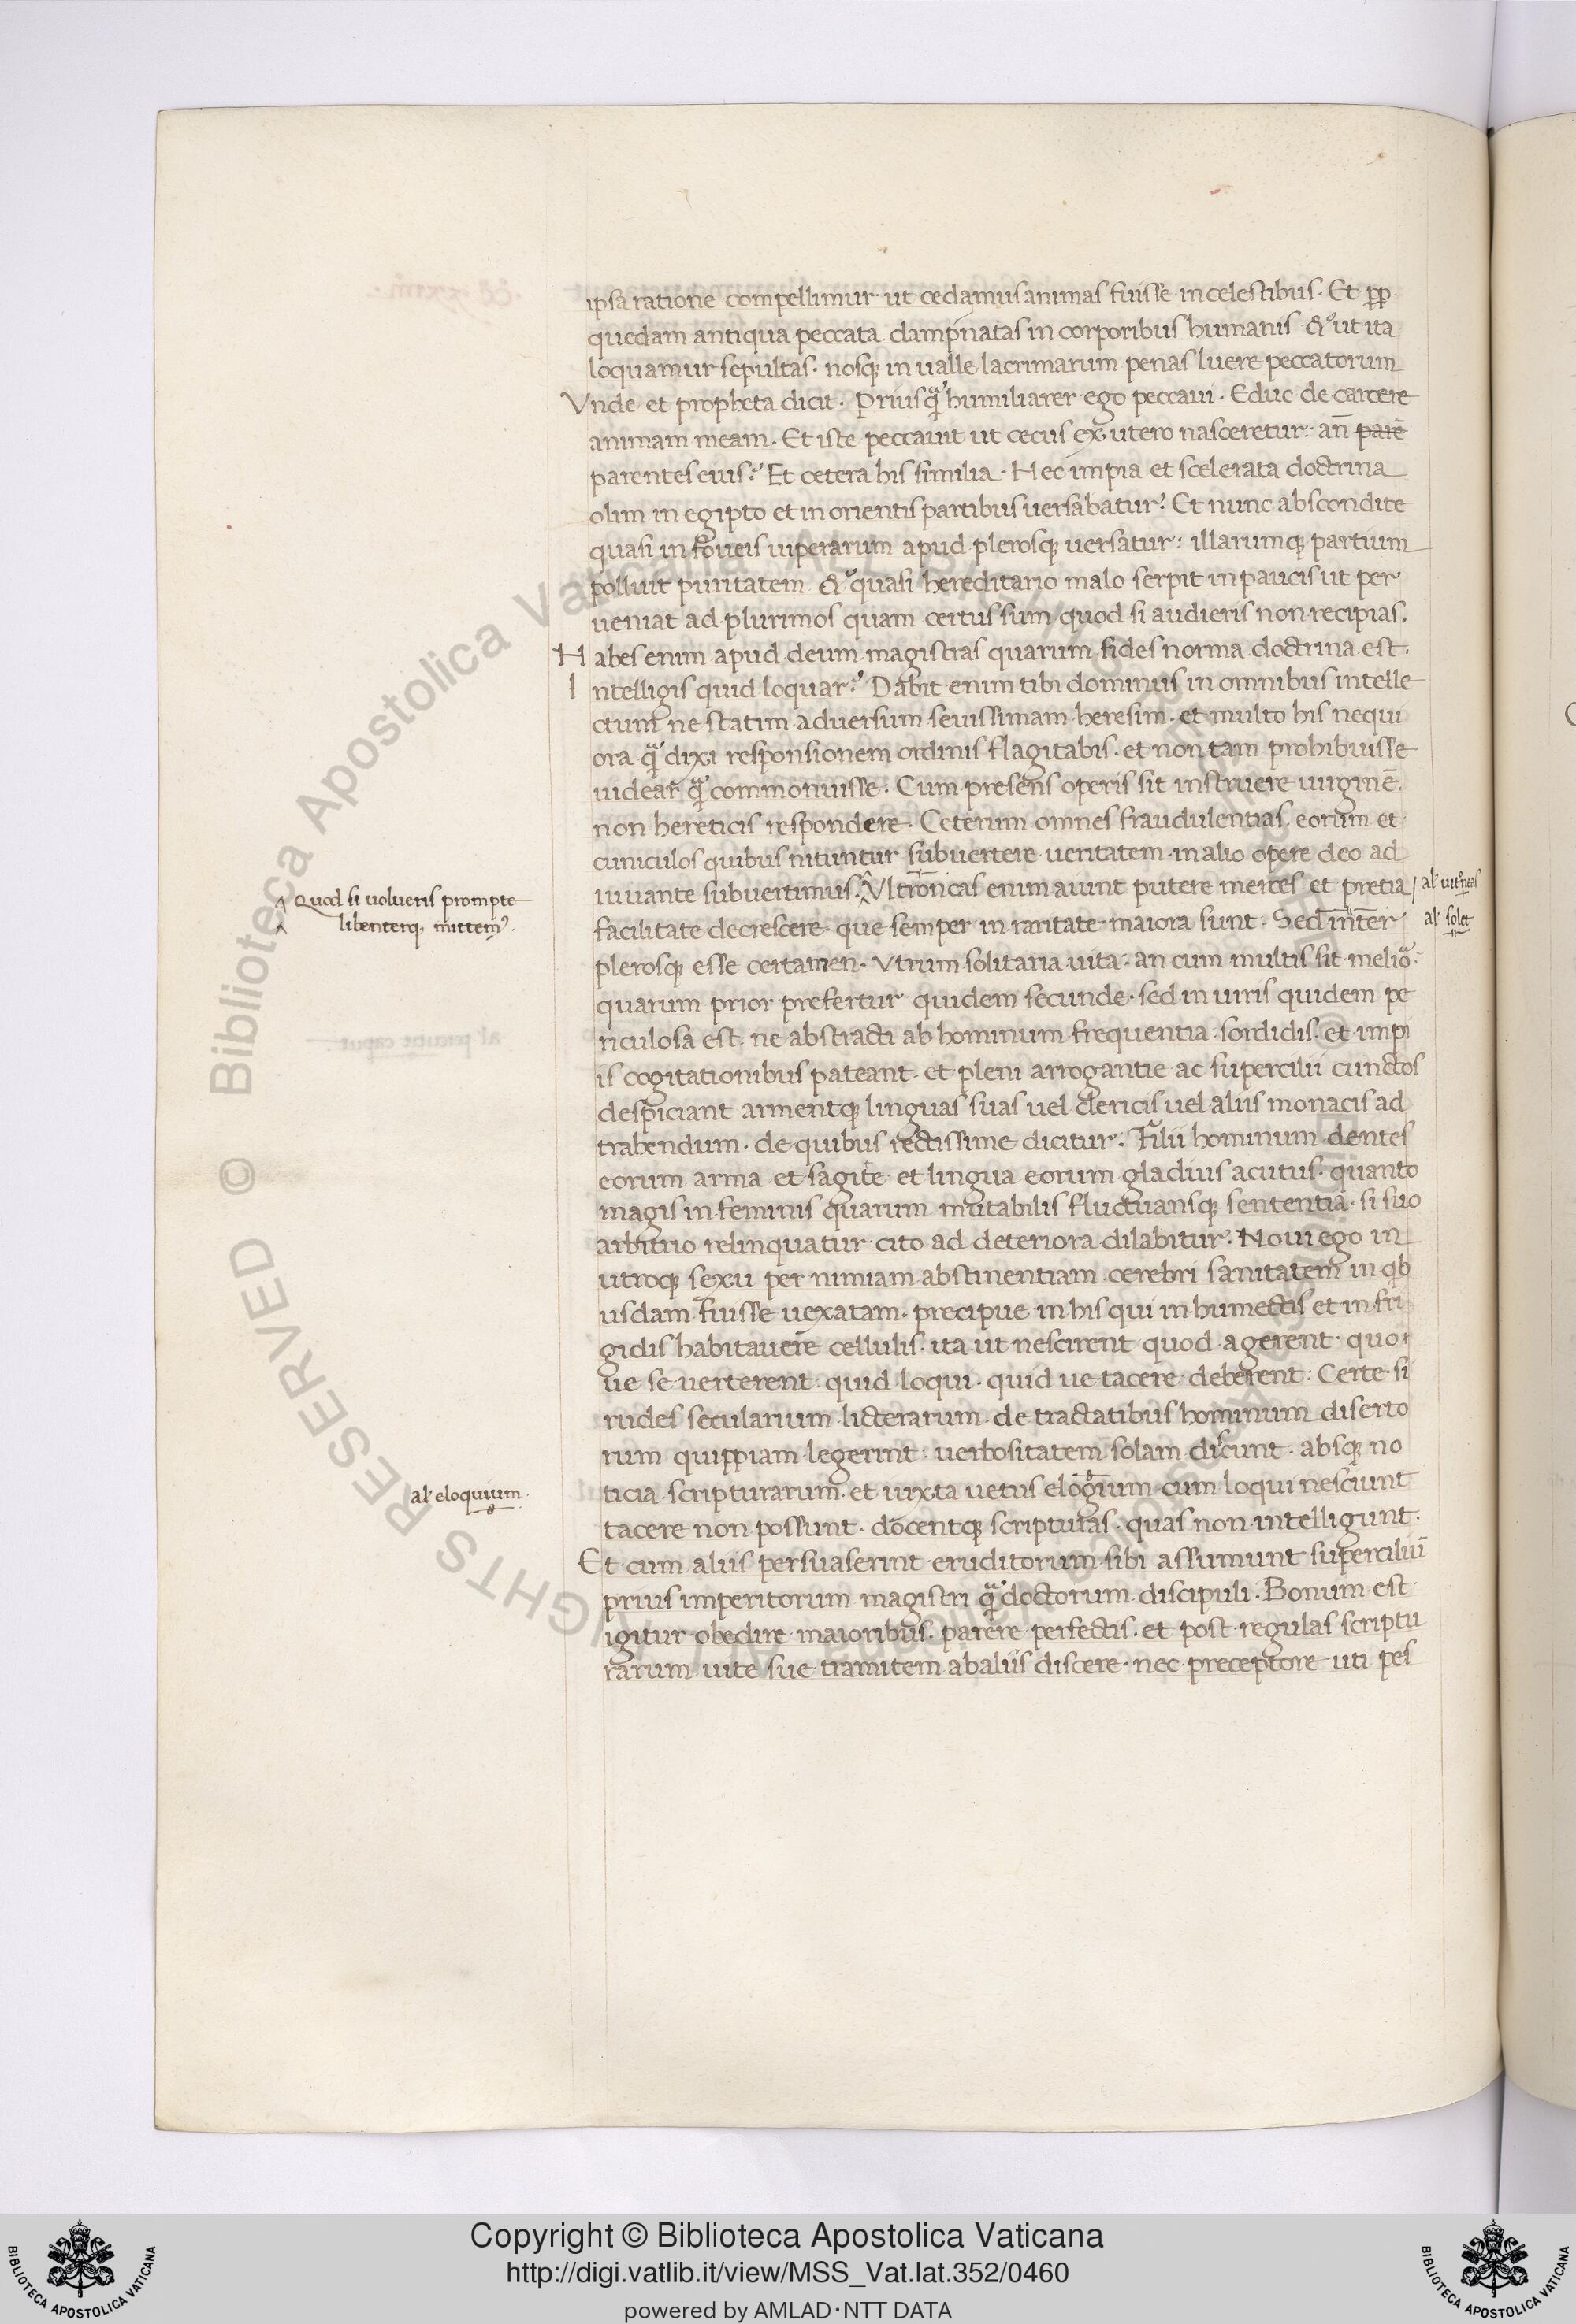 ipsa ratione compellimur ut cedamus animas fuisse in celestibus. Et pp̄
quedam antiqua peccata dampnatas in corporibus humanis & ut ita
loquamur sepultas. nosq; in ualle lacrimarum penas luere peccatorum
Vnde et propheta dicit. Priusq̃ humiliarer ego peccaui. Educ de carcere
animam meam. Et iste peccauit ut cecus ex utero nasceretur: an̄ parē
parentes eius? Et cetera his similia. Hec impia et scelerata doctrina
olim in egipto et in orientis partibus uersabatur. Et nunc abscondite
quasi in foueis uiperarum apud plerosq; uersatur: illarumq; partium
polluit puritatem & quasi hereditario malo serpit in paucis ut per
ueniat ad plurimos quam certus sum quod si audieris non recipias.
Habes enim apud deum magistras quarum fides norma doctrina est.
Intelligis quid loquar? Dabit enim tibi dominus in omnibus intelle
ctum ne statim aduersum seuissimam heresim. et multo his nequi
ora q̃ dixi responsionem ordinis flagitabis. et non tam prohibuisse
uidear q̃ commonuisse. Cum presens operis sit instruere uirginē.
non hereticis respondere. Ceterum omnes fraudulentias eorum et
cuniculos quibus nituntur subuertere ueritatem in alio opere deo ad
iuuante subuertimus. Vltronicas enim aiunt putere merces et pretia
al' ultroneas
Quod si uolueris prompte
libenterq; mittem'.
facilitate decrescere que semper in raritate maiora sunt. Sed inter
al' solet
plerosq; esse certamen. Vtrum solitaria uita: an cum multis sit melior
quarum prior prefertur quidem secunde. sed in uiris quidem pe
riculosa est. ne abstracti ab hominum frequentia sordidis. et impi
is cogitationibus pateant. et pleni arrogantie ac supercilii cunctos
despiciant armentq; linguas suas uel clericis uel aliis monacis ad
trahendum. de quibus rectissime dicitur. Filii hominum dentes
eorum arma et sagite et lingua eorum gladius acutus. quanto
magis in feminis quarum mutabilis fluctuansq; sententia. si suo
arbitrio relinquatur cito ad deteriora dilabitur. Noui ego in
utroq; sexu per nimiam abstinentiam cerebri sanitatem in qb
usdam fuisse uexatam. precipue in his qui in humectis et in fri
gidis habitauere cellulis. ita ut nescirent quod agerent. quo
ue se uerterent quid loqui. quid ue tacere deberent: Certe si
rudes secularium licterarum de tractatibus hominum diserto
rum quippiam legerint: uerbositatem solam discunt. absq; no
ticia scripturarum. et iuxta uetus elogium cum loqui nesciunt
al' eloquium.
tacere non possunt. docentq; scripturas quas non intelligunt.
Et cum aliis persuaserint eruditorum sibi assumunt superciliū
prius imperitorum magistri q̃ doctorum discipuli. Bonum est
igitur obedire maioribus. parere perfectis. et post regulas scriptu
rarum uite sue tramitem ab aliis discere. nec preceptore uti pes
© Biblioteca Apostolica Vaticana ALL RIGHTS RESERVED
Copyright © Biblioteca Apostolica Vaticana
http://digi.vatlib.it/view/MSS_Vat.lat.352/0460
powered by AMLAD·NTT DATA
BIBLIOTECA APOSTOLICA VATICANA
BIBLIOTECA APOSTOLICA VATICANA